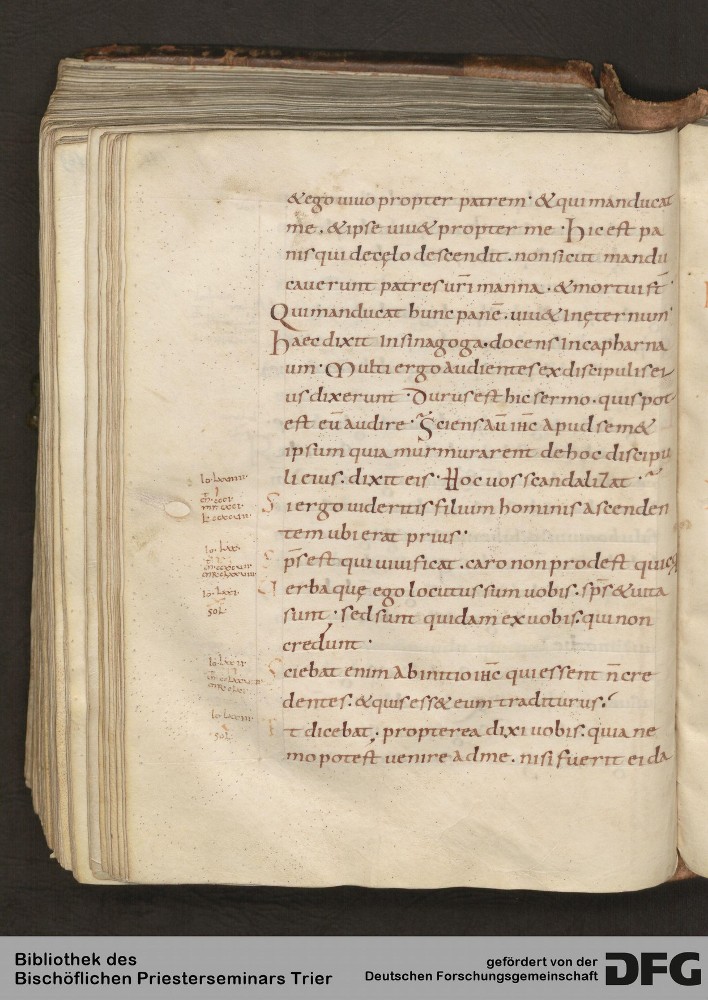 & ego uiuo propter patrem· & qui manducat
me, & ipse uiu& propter me· Hic est pa
nis qui de cęlo descendit. non sicut mandu
cauerunt patres ur̄i manna. & mortui st̄
Qui manducat hunc panē. uiu& in ęternum
Haec dixit in sinagoga. docens in capharna
um· Multi ergo audientes ex discipulis ei
us dixerunt· Durus est hic sermo. quis pot
est eū audire· Sciens aū ihc̄ apud sem&
ipsum quia murmurarent de hoc discipu
li eius. dixit eis· Hoc uos scandalizat·
Si ergo uideritis filium hominis ascenden
tem ubi erat prius·
sp̄s est qui uiuificat. caro non prodest qui
erba quę ego locutus sum uobis. sp̄s & uita
sunt· sed sunt quidam ex uobis. qui non
credunt·
Sciebat enim ab initio ihc̄ qui essent n̄ cre
dentes. & quis ess& eum traditurus.
t dicebat. propterea dixi uobis. quia ne
mo potest uenire ad me. nisi fuerit ei da
sol
sol
Bibliothek des
Bischöflichen Priesterseminars Trier
gefördert von der
Deutschen Forschungsgemeinschaft
DFG